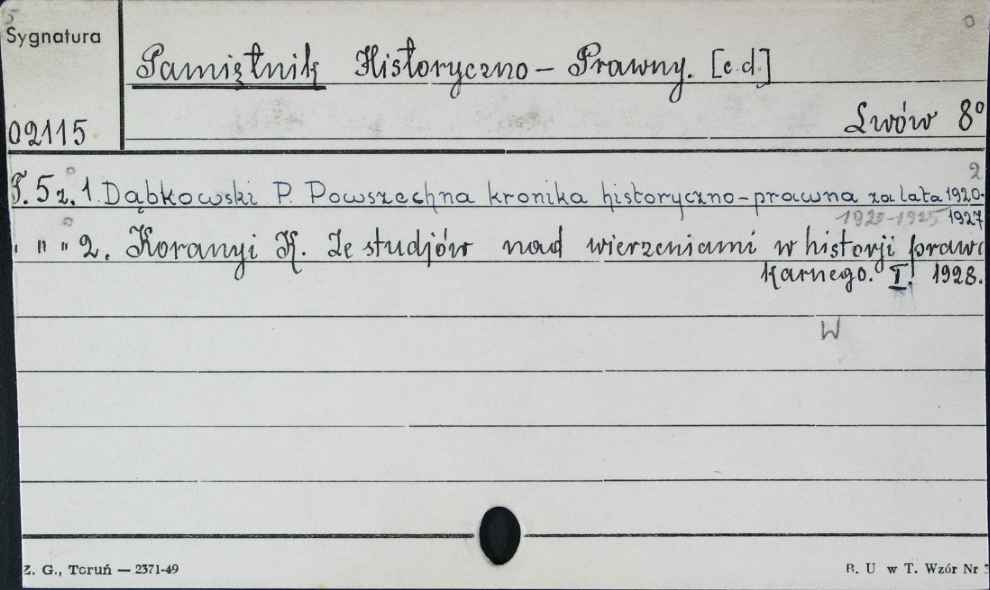 5
Sygnatura
0
Pamiętnik Historyczno – Prawny. [c.d.]
02115
Lwów 8°
2
T. 5 z. 1. Dąbkowski P. Powszechna kronika historyczno-prawna za lata 1920-
1920-1925 1927
" " " 2. Koranyi K. Ze studjów nad wierzeniami w historji prawa
karnego. I. 1928.
W
Z. G., Toruń — 2371-49
B. U w T. Wzór Nr